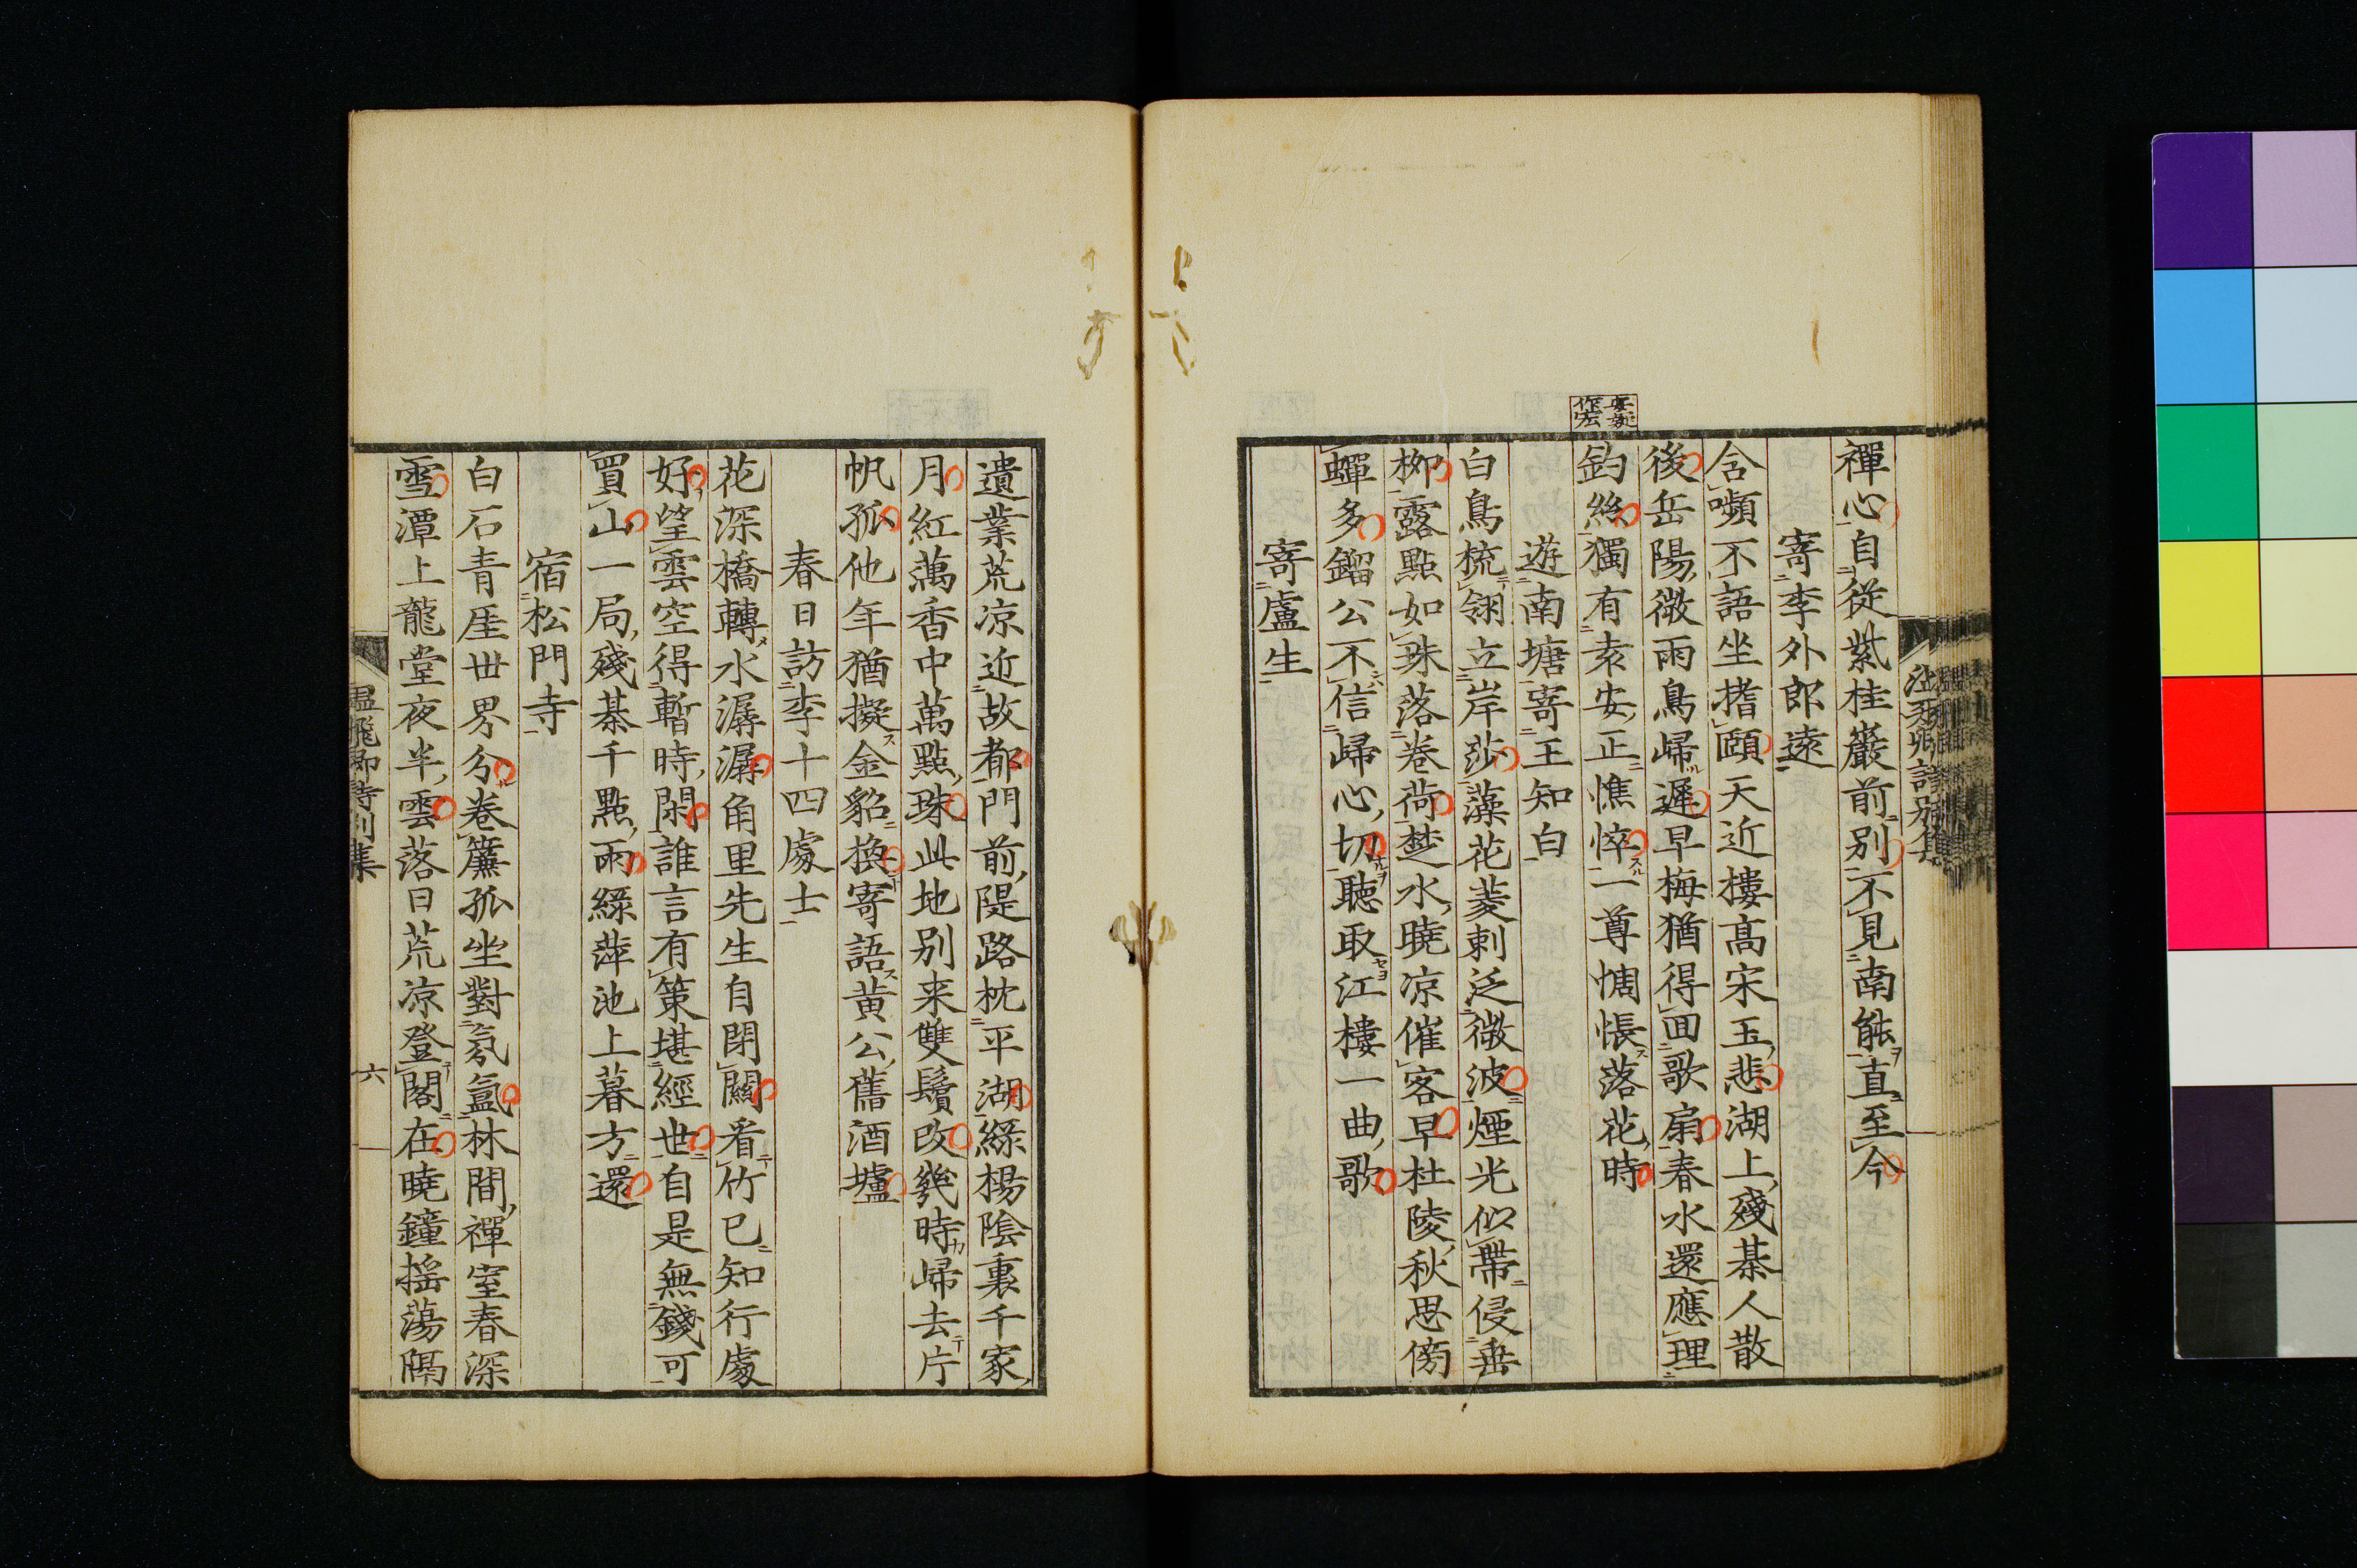 禪心自從紫桂巖前别不見南能直至今
寄李外郎遠
含嚬不語坐揩頤天近樓髙宋玉悲湖上殘棊人散
後岳陽微雨鳥歸遲早梅猶得回歌扇春水還應理
釣絲獨有袁安正憔悴一尊惆悵落花時
遊南塘寄王知白
白鳥梳翎立岸莎藻花菱刺泛微波煙光似帶侵垂
柳露點如珠落卷荷楚水曉凉催客早杜陵秋思傍
蟬多鎦公不信歸心切聽取江樓一曲歌
寄盧生
遺業荒凉近故都門前隄路枕平湖綠楊陰裏千家
月紅藕香中萬點珠此地别来雙鬢改幾時歸去片
帆孤他年猶擬金貂換寄語黄公舊酒壚
春日訪李十四處士
花深橋轉水潺潺甪里先生自閉關看竹已知行處
好望雲空得暫時閑誰言有策堪經世自是無錢可
買山一局殘棊千點雨綠萍池上暮方還
宿松門寺
白石青厓世界分卷簾孤坐對氛氳林間禪室春深
雪潭上龍堂夜半雲落日荒凉登閣在曉鐘揺蕩隔
温飛卿詩别集
六